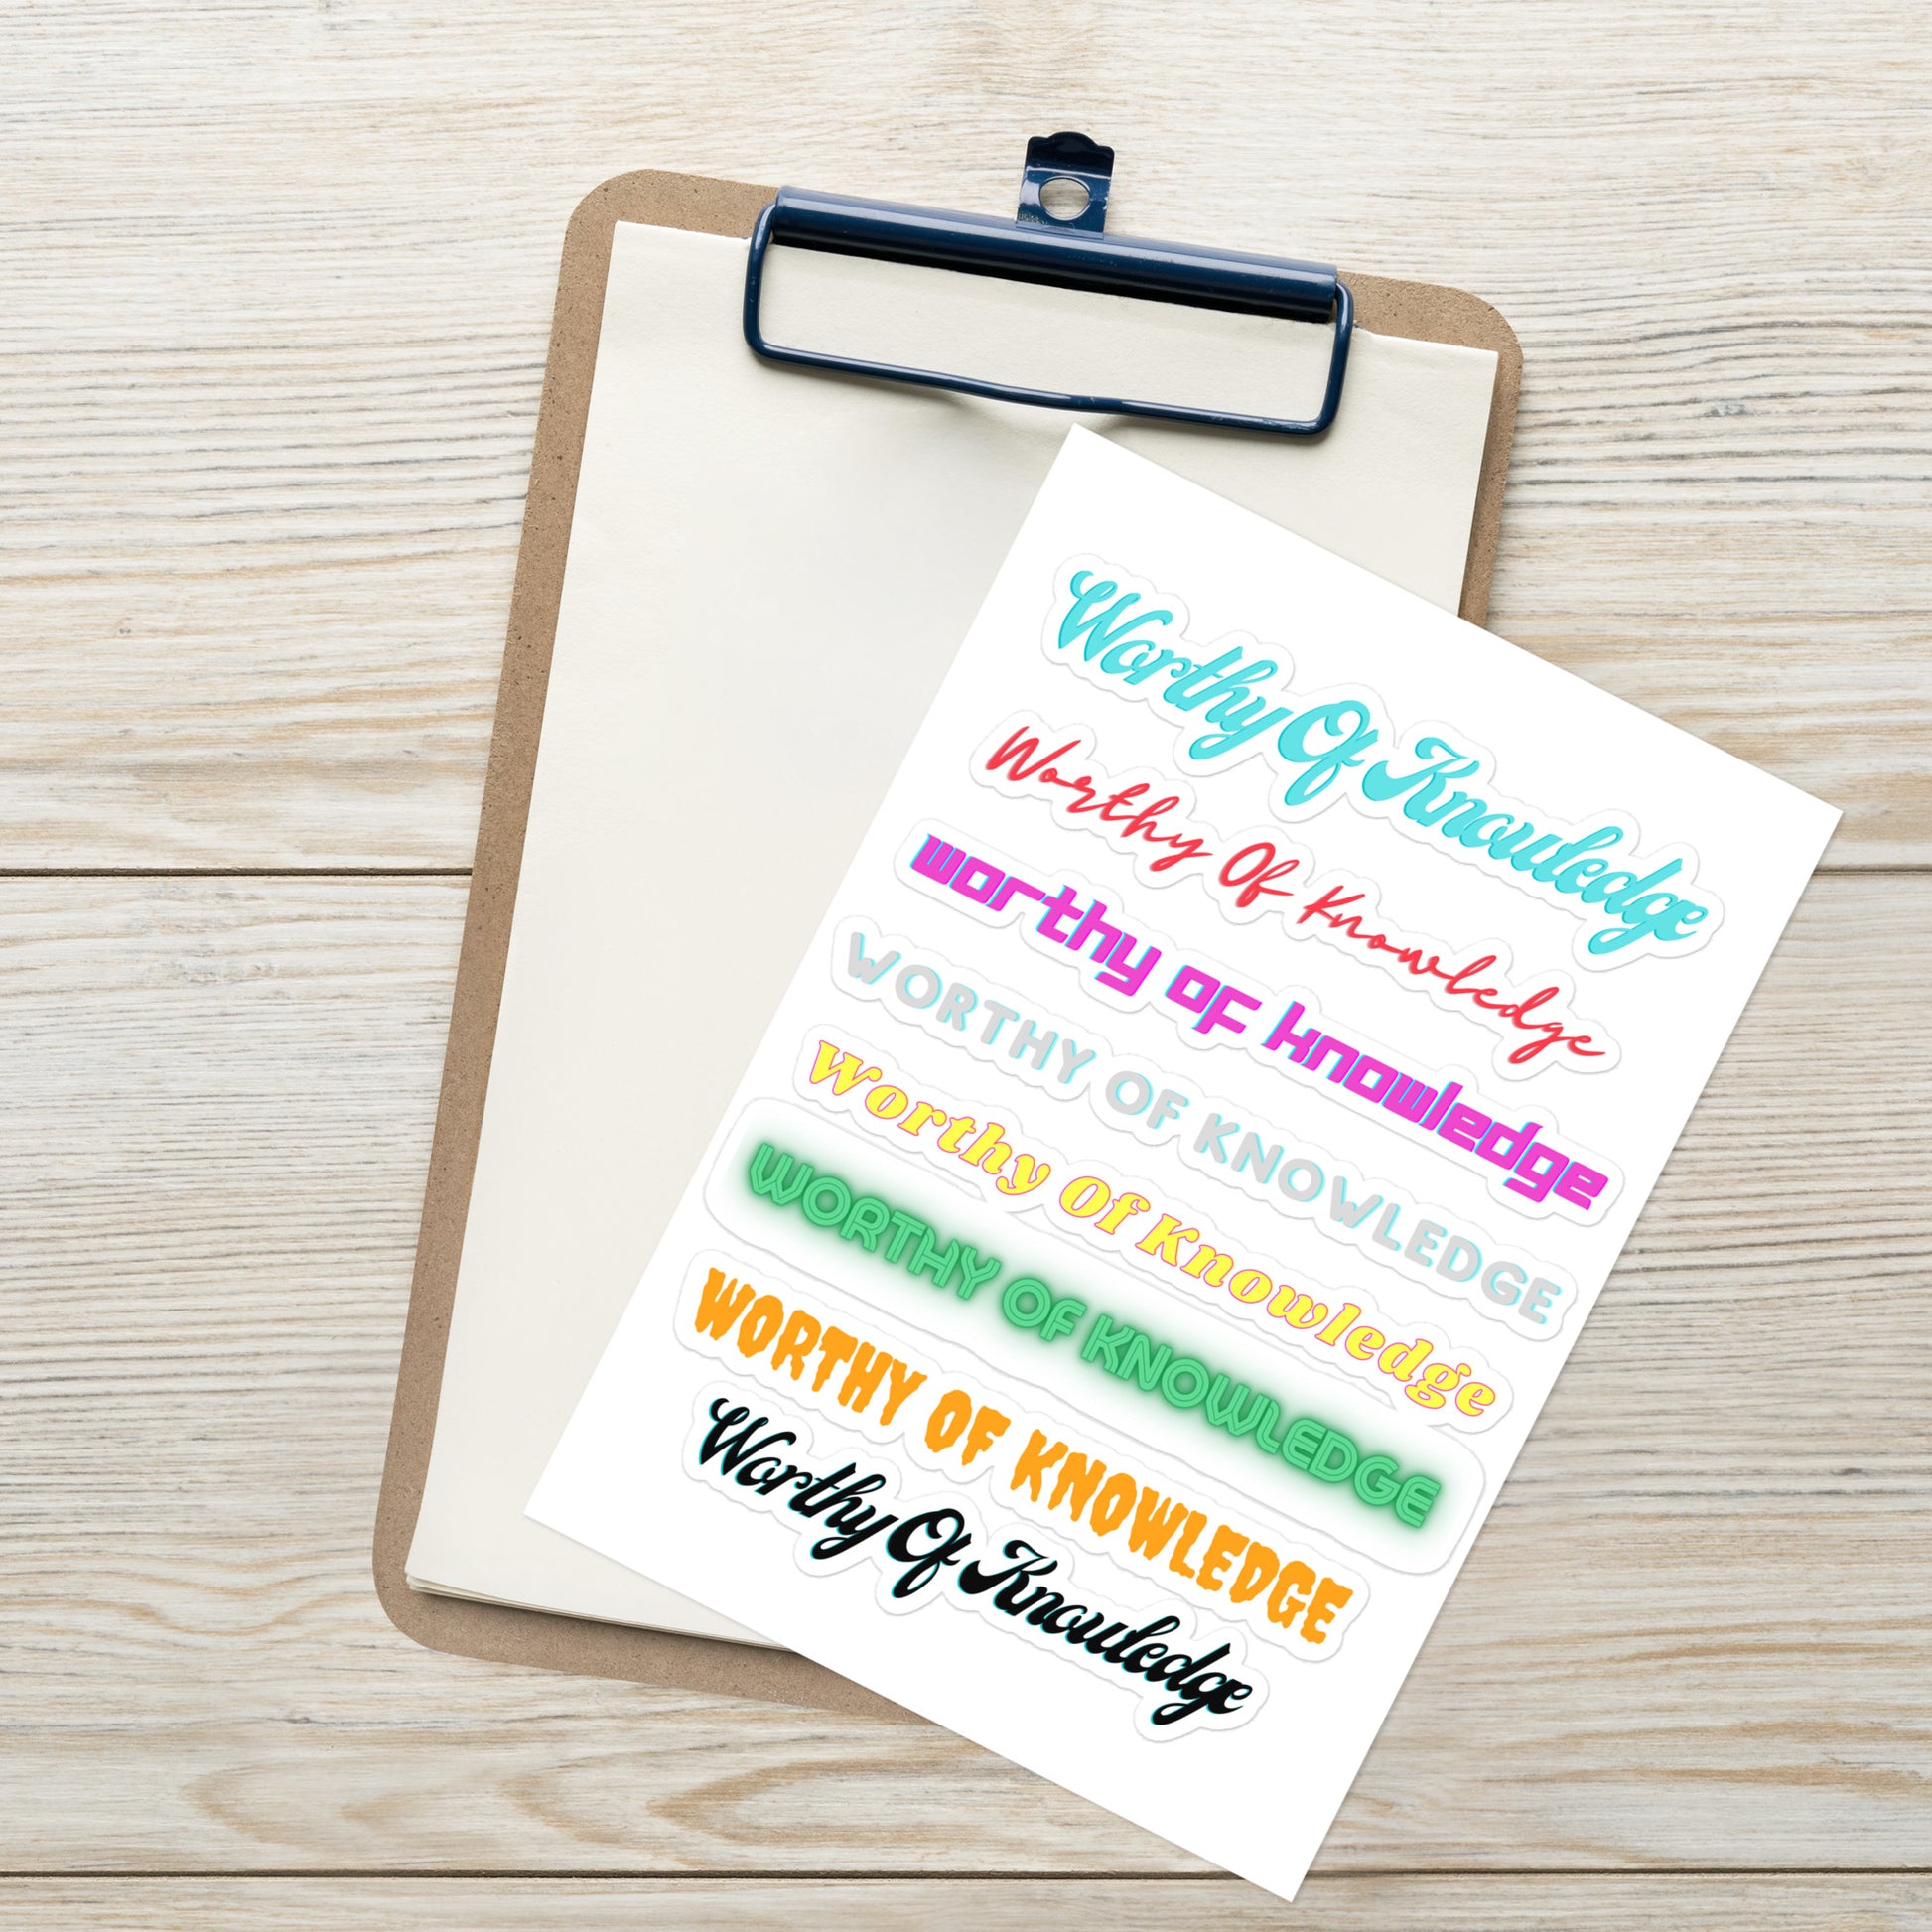 Worthy Of Knowledge
Worthy Of Knowledge
worthy of knowledge
WORTHY OF KNOWLEDGE
Worthy Of Knowledge
WORTHY OF KNOWLEDGE
WORTHY OF KNOWLEDGE
Worthy Of Knowledge